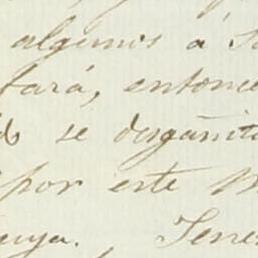 algunos á
tará, entonce
se desgañita
por este M
uya. Tene